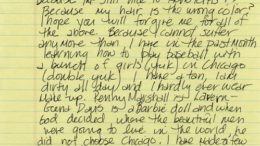 Because my hair is the wrong color?
I hope you will forgive me for all of
the above. Because I cannot suffer
anymore than I have in the past month
learning how to play baseball with
a bunch of girls (yuk) in Chicago
(double yuk) I have a tan, I am
dirty all day and I hardly ever wear
make up. Penny Marshall is Lavern-
Geena Davis is a Barbie doll and when
God decided where the beautiful men
were going to live in the world, he
did not choose Chicago. I have made a few